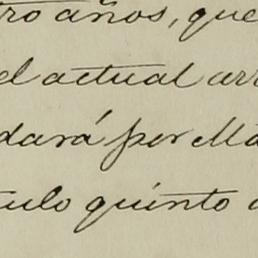 tro años, que
el actual arr
dará por Ma
tulo quinto